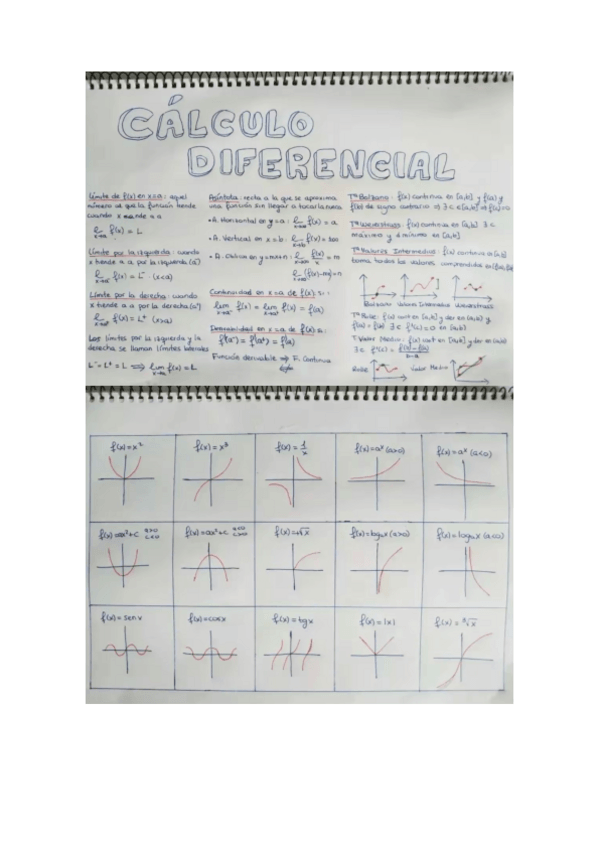 CÁLCULO
DIFERENCIAL
Límite de f(x) en x=a: aquel
número al que la función tiende
cuando x tiende a a
f(x) = L
Límite por la izquierda: cuando
x tiende a a, por la izquierda (a⁻)
f(x) = L⁻ (x<a)
Límite por la derecha: cuando
x tiende a a por la derecha (a⁺)
f(x) = L⁺ (x>a)
Los límites por la izquierda y la
derecha se llaman límites laterales
L⁻ = L⁺ = L ⟺ lim f(x) = L
Asíntota: recta a la que se aproxima
una función sin llegar a tocarla nunca
• A. Horizontal en y=a: f(x) = a
• A. Vertical en x=b: f(x) = ±∞
• A. Oblicua en y=mx+n: f(x)/x = m
(f(x)-mx) = n
Continuidad en x=a de f(x) si:
lim f(x) = lim f(x) = f(a)
Derivabilidad en x=a de f(x) si:
f'(a⁻) = f'(a⁺) = f'(a)
Función derivable ⇒ F. Continua
Tª Bolzano: f(x) continua en [a,b] y f(a) y
f(b) de signo contrario ⇒ ∃ c ∈
Tª Weierstrass: f(x) continua en [a,b] ∃
máximo y mínimo en [a,b]
Tª Valores Intermedios: f(x) continua en [a,b]
toma todos los valores comprendidos en
Bolzano Valores Intermedios Weierstrass
Tª Rolle: f(x) cont en [a,b] y der en (a,b) y
f(a) = f(b) ∃ c f'(c) = 0 en (a,b)
T. Valor Medio: f(x) cont en [a,b] y der en (a,b)
∃ c f'(c) = f(b)-f(a)/b-a
Rolle Valor Medio
f(x)=x² f(x)=x³ f(x)=1/x f(x)=aˣ (a>0) f(x)=aˣ (a<0)
f(x)=ax²+c a>0 c<0 f(x)=ax²+c a<0 c>0 f(x)=√x f(x)=logₐx (a>0) f(x)=logₐx (a<0)
f(x)=sen x f(x)=cosx f(x)=tgx f(x)=|x| f(x)=³√x